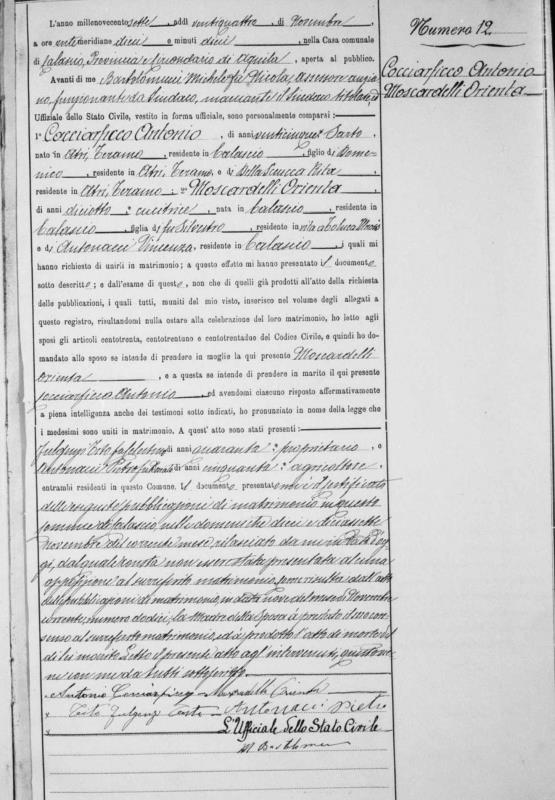 Numero 12
Cocciarficco Antonio
Moscardelli Orienta
L'anno millenovecentosette, addì ventiquattro di Novembre,
a ore antimeridiane dieci e minuti dieci, nella Casa comunale
di Calascio, Provincia e Circondario di Aquila, aperta al pubblico.
Avanti di me Bartolomucci Michele fu Nicola, assessore anzia-
no, funzionante da Sindaco, mancante il Sindaco titolare,
Uffiziale dello Stato Civile, vestito in forma ufficiale, sono personalmente comparsi:
1° Cocciarficco Antonio, di anni venticinque, Sarto
nato in Atri, Teramo, residente in Calascio, figlio di Dome-
nico, residente in Atri, Teramo, e di Della Sciucca Rita
residente in Atri, Teramo; 2° Moscardelli Orienta
di anni diciotto, cucitrice, nata in Calascio, residente in
Calascio, figlia di fu Silvestro, residente in vita a
e di Antonacci Vincenza, residente in Calascio, i quali mi
hanno richiesto di unirli in matrimonio; a questo effetto mi hanno presentato il documento
sotto descritto; e dall'esame di questo, non che di quelli già prodotti all'atto della richiesta
delle pubblicazioni, i quali tutti, muniti del mio visto, inserisco nel volume degli allegati a
questo registro, risultandomi nulla ostare alla celebrazione del loro matrimonio, ho letto agli
sposi gli articoli centotrenta, centotrentuno e centotrentadue del Codice Civile, e quindi ho do-
mandato allo sposo se intende di prendere in moglie la qui presente Moscardelli
Orienta, e a questa se intende di prendere in marito il qui presente
Cocciarficco Antonio, ed avendomi ciascuno risposto affermativamente
a piena intelligenza anche dei testimoni sotto indicati, ho pronunziato in nome della legge che
i medesimi sono uniti in matrimonio. A quest'atto sono stati presenti:
Fulgenzi Tito fu Celestino, di anni quaranta, proprietario, e
Antonacci Pietro fu di anni cinquanta, agricoltore,
entrambi residenti in questo Comune. Il documento presentato mi è il certificato
delle seguite pubblicazioni di matrimonio in questo
Comune di Calascio, nelle domeniche dieci e diciassette
Novembre del corrente mese, rilasciato da me in data d'og-
gi, dal quale consta non essere stata presentata alcuna
opposizione al surriferito matrimonio, come risulta dall'atto
delle pubblicazioni di matrimonio, in data nove del mese di Novembre
corrente, numero dodici. La Madre della Sposa à prestato il suo con-
senso al surriferito matrimonio, ed à prodotto l'atto di morte
di lei marito. Letto il presente atto agl'intervenuti, questi
con me da tutti sottoscritto.
Antonio Moscardelli Orienta
Testa Fulgenzi Teste Antonacci Pietro
L'Ufficiale dello Stato Civile
M Bartolomucci